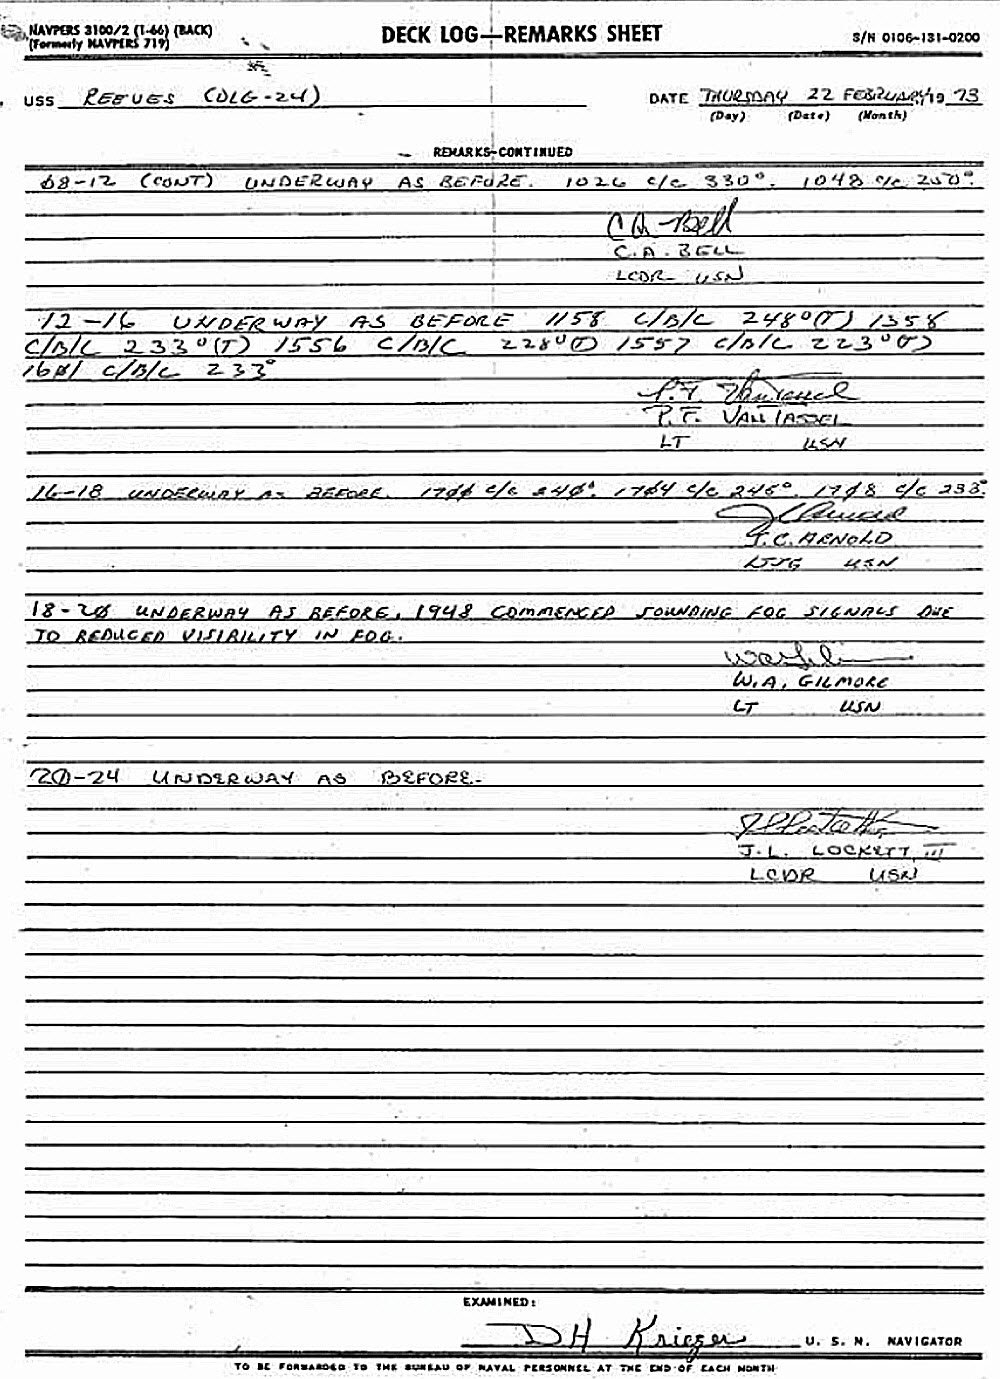 NAVPERS 3100/2 (1-66) (BACK)
(Formerly NAVPERS 719)
DECK LOG—REMARKS SHEET
S/N 0106-131-0200
USS REEVES (DLG-24)
DATE THURSDAY 22 FEBRUARY 19 73
(Day) (Date) (Month)
REMARKS-CONTINUED
08-12 (CONT) UNDERWAY AS BEFORE. 1026 c/c 330°. 1048 c/c 250°.
C.A. Bell
C.A. BELL
LCDR USN
12-16 UNDERWAY AS BEFORE 1158 C/B/C 248°(T) 1358
C/B/C 233°(T) 1556 C/B/C 228°(T) 1557 C/B/C 223°(T)
1601 C/B/C 233°
P.F. VanTassel
P.F. VANTASSEL
LT USN
16-18 UNDERWAY AS BEFORE. 1700 c/c 240°. 1704 c/c 245°. 1708 c/c 233°.
J.C. ARNOLD
LTJG USN
18-20 UNDERWAY AS BEFORE. 1948 COMMENCED SOUNDING FOG SIGNALS DUE
TO REDUCED VISIBILITY IN FOG.
W.A. GILMORE
LT USN
20-24 UNDERWAY AS BEFORE.
J.L. LOCKETT, III
LCDR USN
EXAMINED:
DH Krieger U. S. N. NAVIGATOR
TO BE FORWARDED TO THE BUREAU OF NAVAL PERSONNEL AT THE END OF EACH MONTH